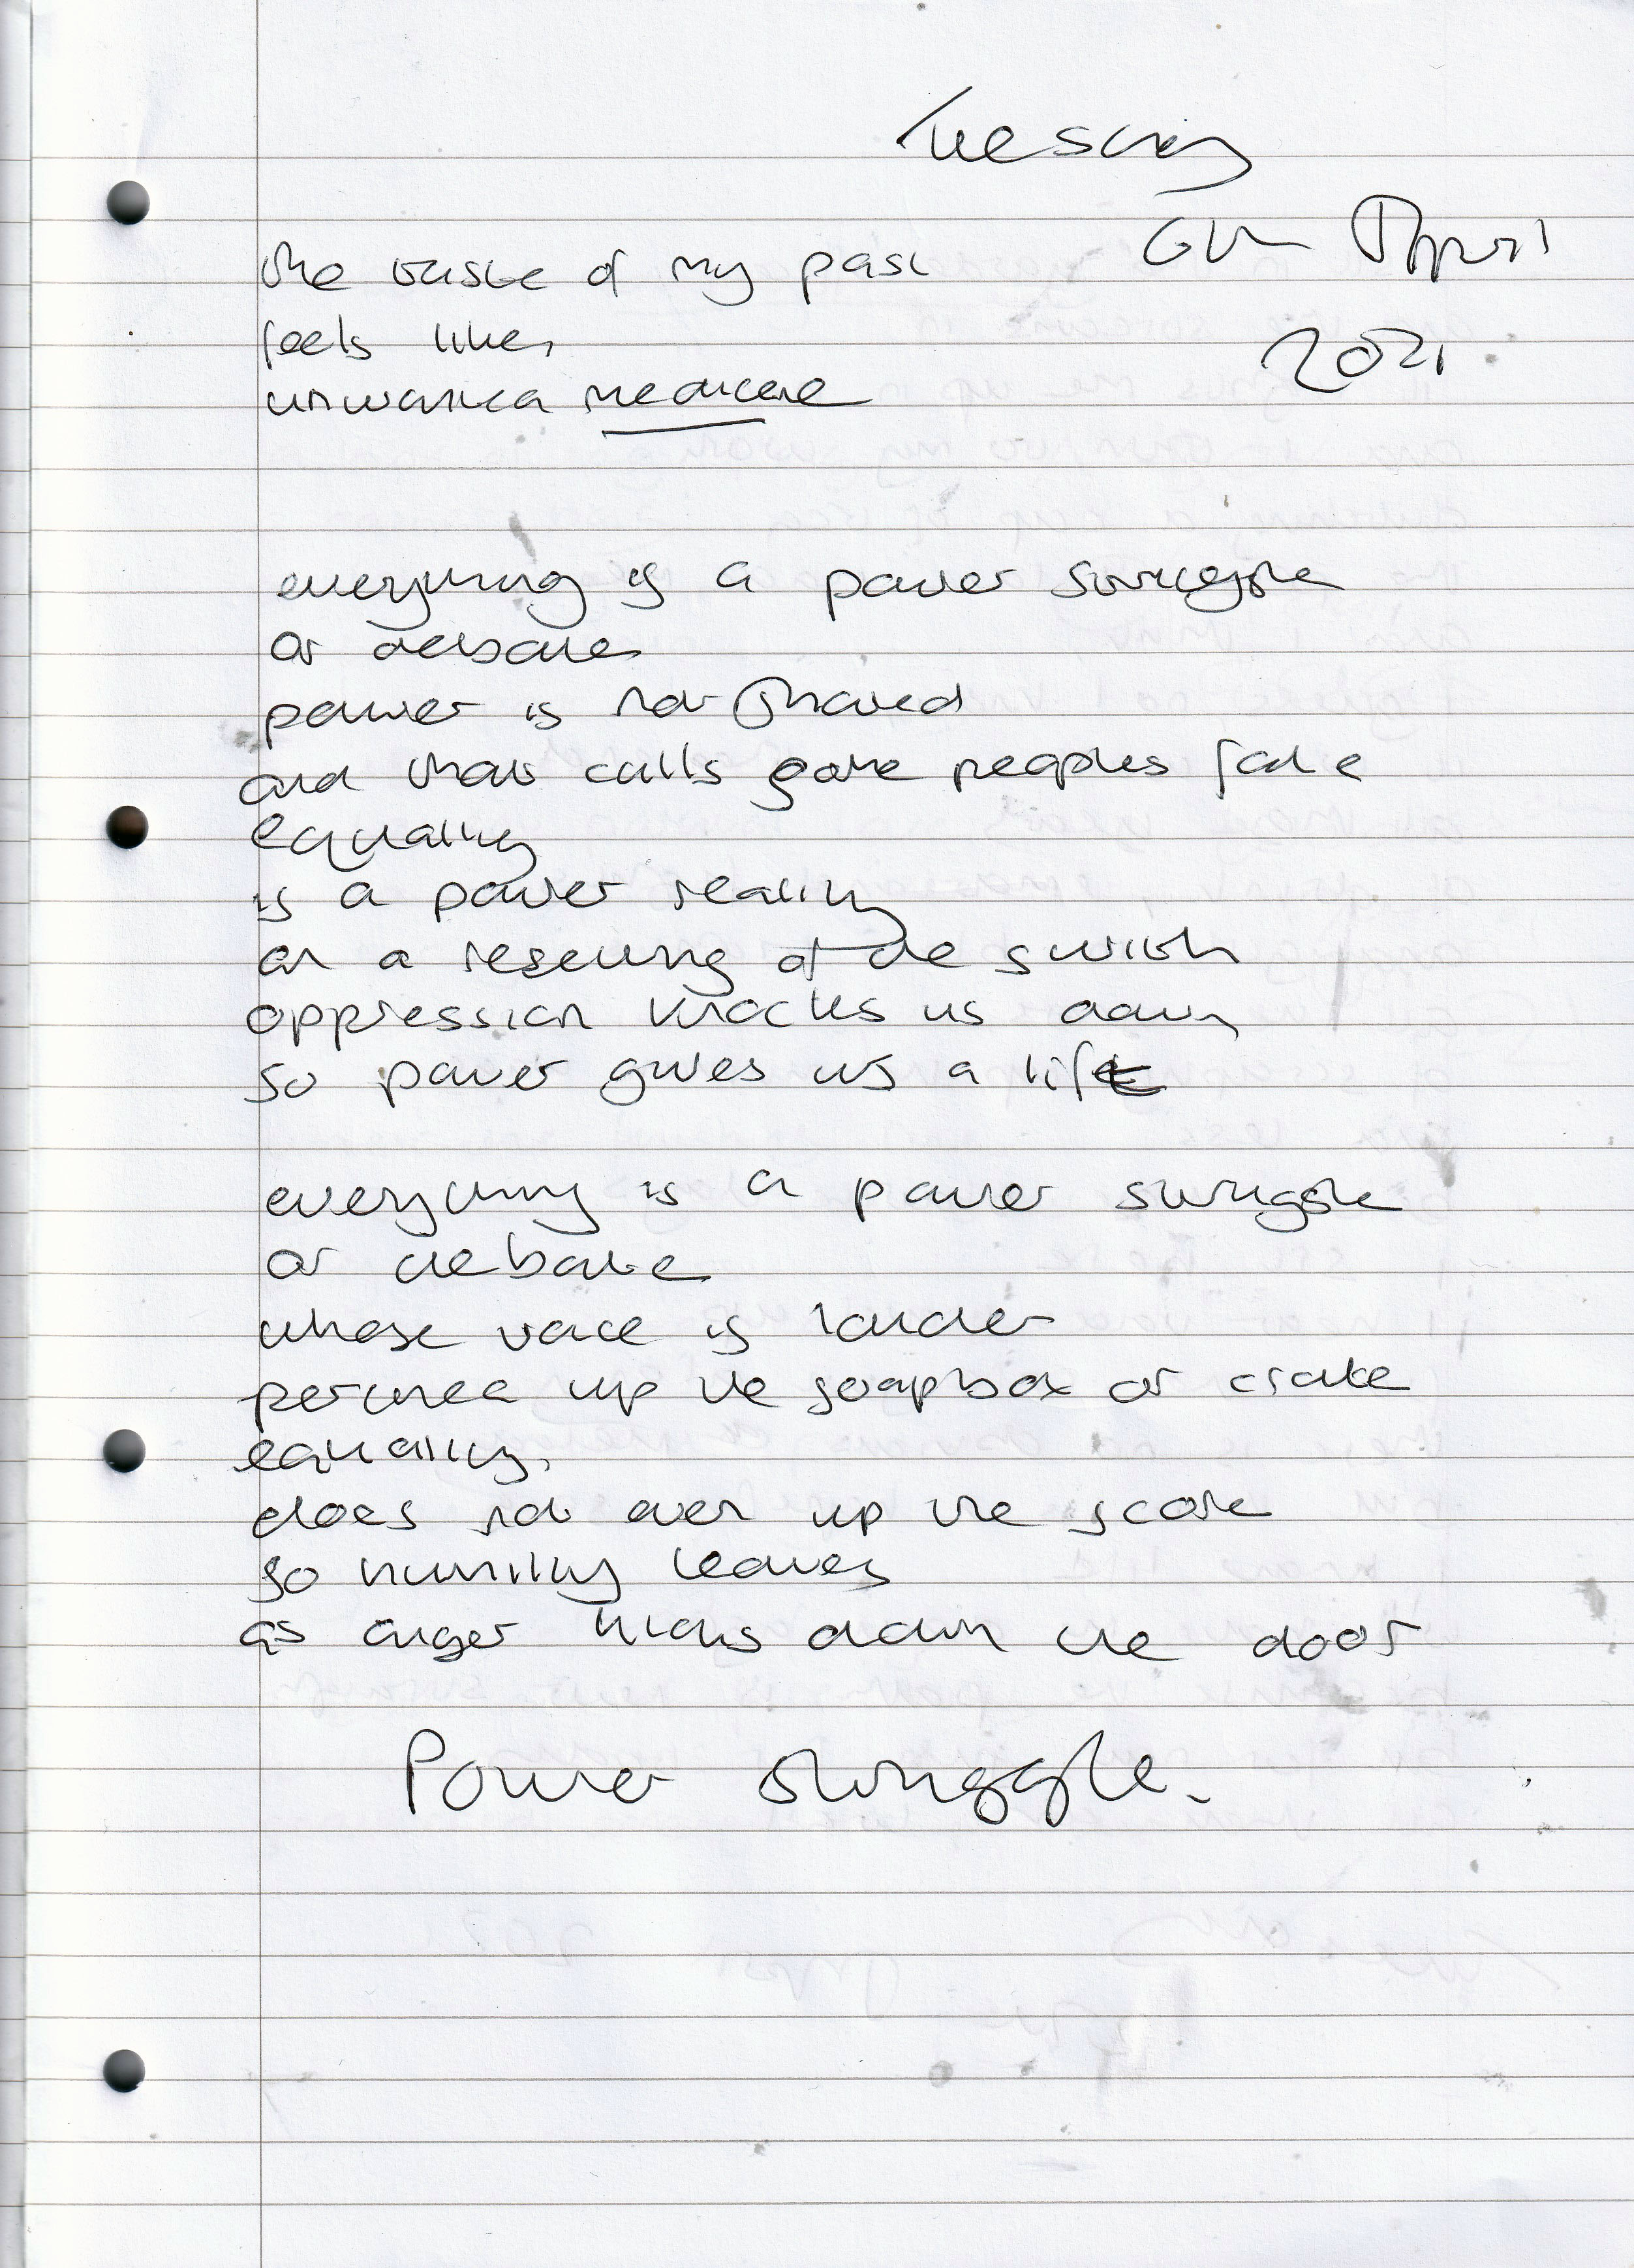 Tuesday
6th April
2021
the taste of my past
feels like,
unwanted medicine
everything is a power struggle
or debate
power is not shared
and that calls some peoples fate
equality
is a power reality
or a resetting of the switch
oppression knocks us down
so power gives us a lift
everything is a power struggle
or debate
whose voice is louder
perched up the soapbox or crate
equality,
does not even up the score
so humility leaves
as anger kicks down the door
Power struggle.